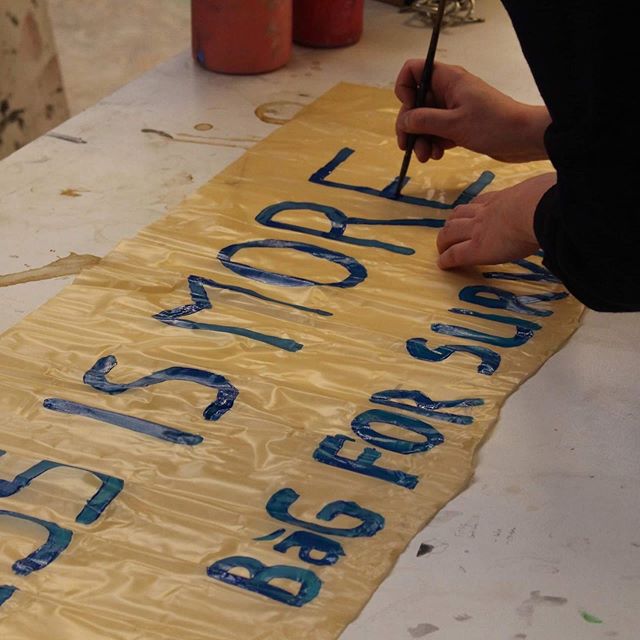 US IS MORE
BaG FOR SUR